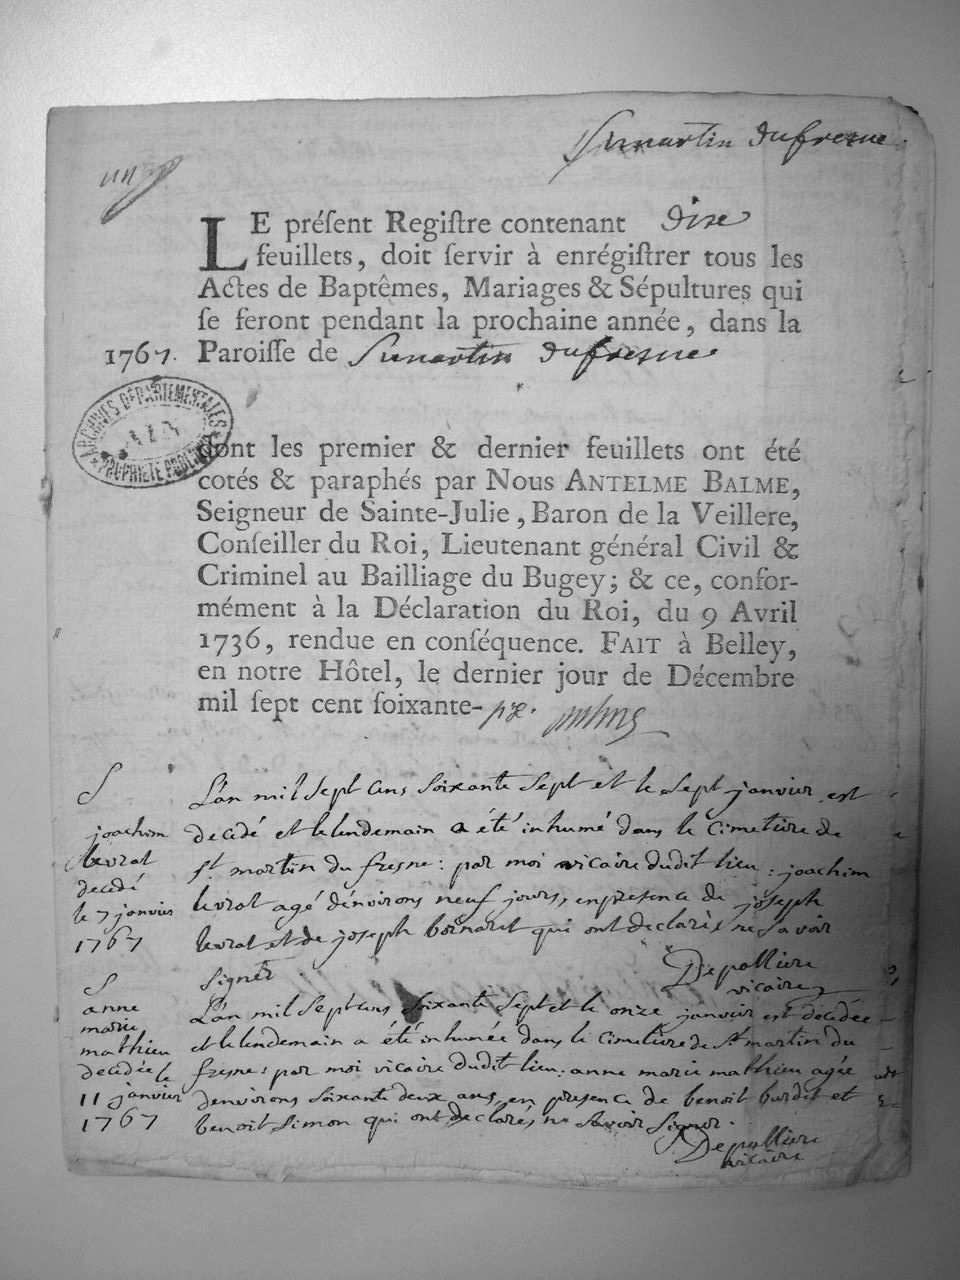 St martin dufresne
un
LE préſent Regiſtre contenant dixe
feuillets, doit ſervir à enrégiſtrer tous les
Actes de Baptêmes, Mariages & Sépultures qui
ſe feront pendant la prochaine année, dans la
1767. Paroiſſe de St martin dufresne
ARCHIVES DÉPARTEMENTALES
PROPRIÉTÉ PUBLIQUE
dont les premier & dernier feuillets ont été
cotés & paraphés par Nous ANTELME BALME,
Seigneur de Sainte-Julie, Baron de la Veillere,
Conſeiller du Roi, Lieutenant général Civil &
Criminel au Bailliage du Bugey; & ce, confor-
mément à la Déclaration du Roi, du 9 Avril
1736, rendue en conſéquence. FAIT à Belley,
en notre Hôtel, le dernier jour de Décembre
mil ſept cent ſoixante-
S
joachim
levrat
decédé
le 7 janvier
1767
L'an mil sept cens soixante sept et le sept janvier est
decédé et le lendemain a été inhumé dans le cimetiere de
st martin du fresne: par moi vicaire dudit lieu: joachim
levrat agé denvirons neuf jours, en presence de joseph
levrat et de joseph bornaret qui ont declarés ne savoir
signer
Depolliere
vicaire
S
anne
marie
mathieu
decédée le
11 janvier
1767
L'an mil sept cens soixante sept et le onze janvier est decédée
et le lendemain a été inhumée dans le cimetiere de st martin du
fresne: par moi vicaire dudit lieu: anne marie mathieu agée
denvirons soixante deux ans, en presence de benoit burdit et
benoit simon qui ont declarés ne savoir signer.
Depolliere
vicaire